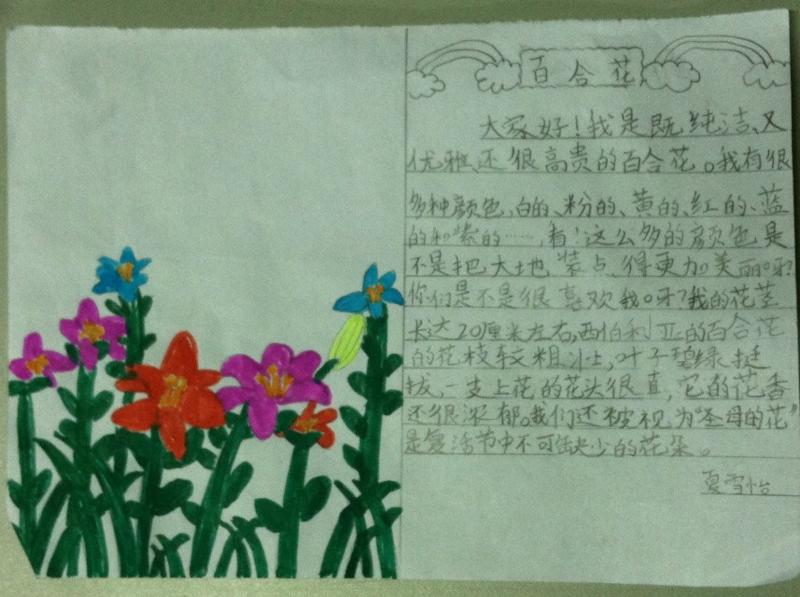 百合花
大家好!我是既纯洁、又
优雅、还很高贵的百合花。我有很
多种颜色,白的、粉的、黄的、红的、蓝
的和紫的……,看!这么多的颜色是
不是把大地装点得更加美丽呀?
你们是不是很喜欢我呀?我的花茎
长达20厘米左右,西伯利亚的百合花
的花枝较粗壮,叶子碧绿挺
拔,一支上花的花头很直,它的花香
还很浓郁。我们还被视为“圣母的花”
是复活节中不可缺少的花朵。
夏雪怡